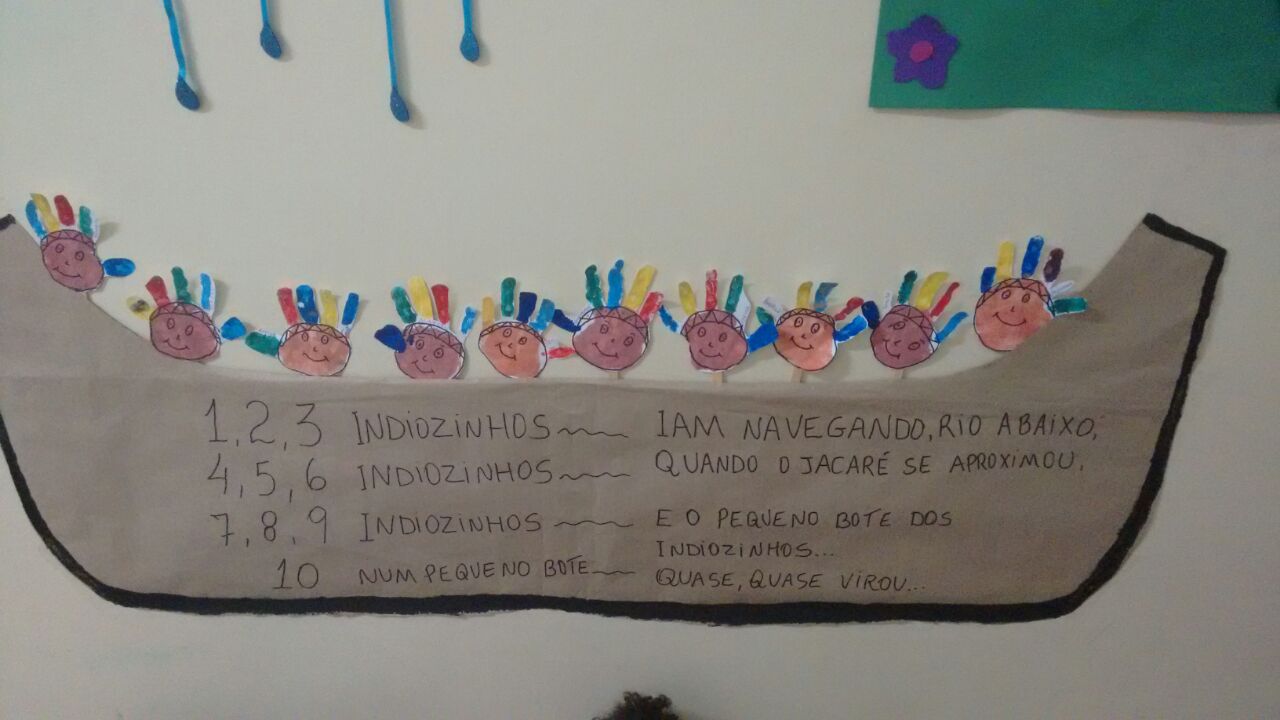 1, 2, 3 INDIOZINHOS
4, 5, 6 INDIOZINHOS
7, 8, 9 INDIOZINHOS
10 NUM PEQUENO BOTE
IAM NAVEGANDO, RIO ABAIXO,
QUANDO O JACARÉ SE APROXIMOU,
E O PEQUENO BOTE DOS
INDIOZINHOS...
QUASE, QUASE VIROU...